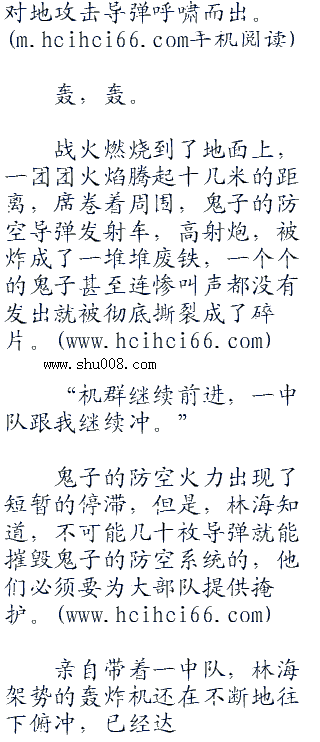 对地攻击导弹呼啸而出。
(m.hcihci66.com手机阅读)
轰，轰。
战火燃烧到了地面上，
一团团火焰腾起十几米的距
离，席卷着周围，鬼子的防
空导弹发射车，高射炮，被
炸成了一堆堆废铁，一个个
的鬼子甚至连惨叫声都没有
发出就被彻底撕裂成了碎
片。(www.hcihci66.com)
www.shu008.com
“机群继续前进，一中
队跟我继续冲。”
鬼子的防空火力出现了
短暂的停滞，但是，林海知
道，不可能几十枚导弹就能
摧毁鬼子的防空系统的，他
们必须要为大部队提供掩
护。(www.hcihci66.com)
亲自带着一中队，林海
架势的轰炸机还在不断地往
下俯冲，已经达